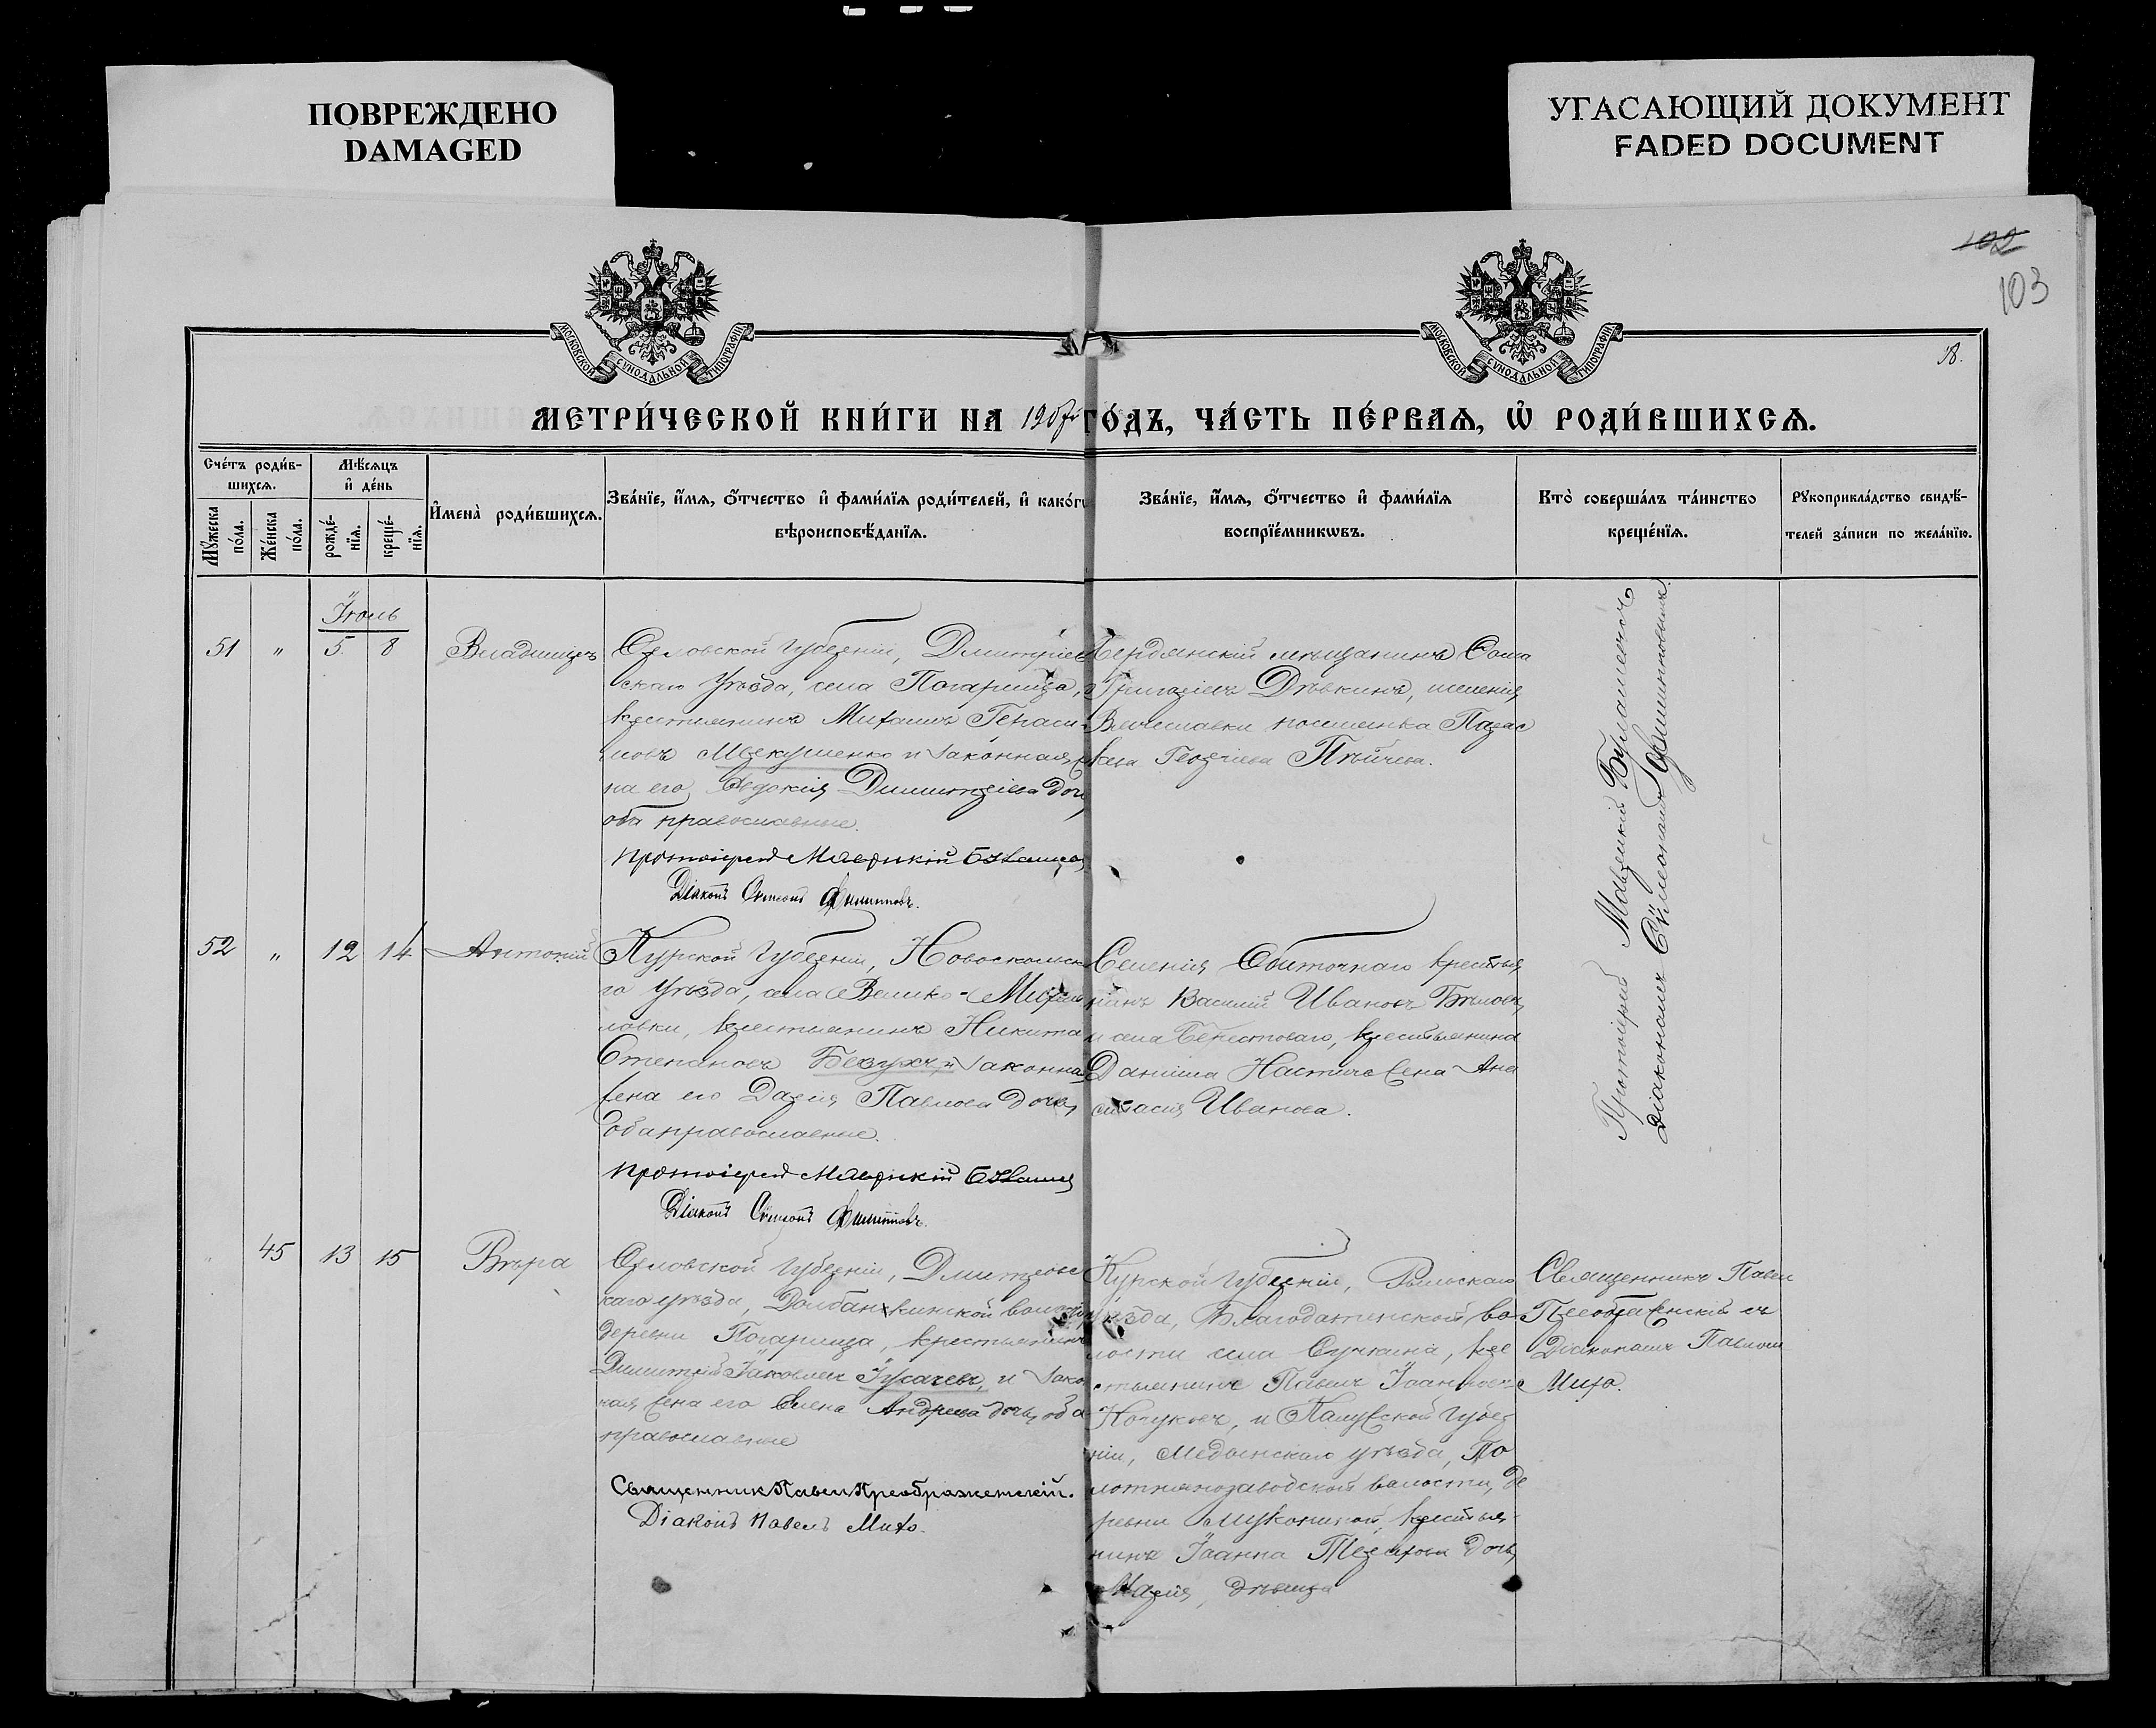 ПОВРЕЖДЕНО
DAMAGED
УГАСАЮЩИЙ ДОКУМЕНТ
FADED DOCUMENT
102
103
18.
МОСКОВСКОЙ СѴНОДАЛЬНОЙ ТИПОГРАФІИ
МОСКОВСКОЙ СѴНОДАЛЬНОЙ ТИПОГРАФІИ
МЕТРИ́ЧЕСКОЙ КНИ́ГИ НА 1907 ГО́ДЪ, ЧА́СТЬ ПЕ́РВАѦ, Ѡ҆ РОДИ́ВШИХСѦ.
Сче́тъ роди́в-
шихсѧ.
Мꙋ́жеска
по́ла.
Же́нска
по́ла.
Мѣ́сѧцъ
и҆ де́нь
рожде́-
нїѧ.
креще́-
нїѧ.
И҆мена̀ роди́вшихсѧ.
Зва́нїе, и҆́мѧ, ѻ҆́тчество и҆ фами́лїѧ роди́телей, и҆ како́гѡ
вѣроисповѣ́данїѧ.
Зва́нїе, и҆́мѧ, ѻ҆́тчество и҆ фами́лїѧ
воспрїе́мникѡвъ.
Кто̀ соверша́лъ та́инство
креще́нїѧ.
Рꙋкоприкла́дство свидѣ́-
телей за́писи по жела́нїю.
Іюль
51 " 5 8 Владиміръ
Орловской губерніи, Дмитріев
скаго уѣзда, села Погарища,
крестьянинъ Михаилъ Гераси-
мовъ и законная же
на его Евдокія Димитріева дочь,
оба православные.
Протоіерей Маврикій
Діаконъ Сѵмеонъ Филипповъ.
Бердянскій мѣщанинъ Ѳома
Григоріевъ Дѣвкинъ, имѣнія
Вячеславки поселянка Парас
кева Георгіева Пѣйчева.
Протоіерей Маврикій
Діакономъ Сѵмеономъ Филипповымъ.
52 " 12 14 Антоній
Курской губерніи, Новооскольска
го уѣзда, села Велико-Михай
ловки, крестьянинъ Никита
Степановъ Безухъ, и законная
жена его Дарія Павлова дочь,
оба православные.
Протоіерей Маврикій
Діаконъ Сѵмеонъ Филипповъ.
Селенія Обиточнаго крестья
нинъ Василій Ивановъ Бѣловъ,
и села Берестоваго, крестьянина
Даніила жена Ана
стасія Иванова.
45 13 15 Вѣра
Орловской губерніи, Дмитровс
каго уѣзда, Долбанкинской волости
деревни Погарища, крестьянинъ
Димитрій Іаковлевъ Гусачевъ, и закон
ная жена его Елена Андреева дочь, оба
православные
Священникъ Павелъ Преображенскій.
Діаконъ Павелъ Михо.
Курской губерніи, Рыльскаго
уѣзда, Благодатенской во
лости села Сучкина, кре
стьянинъ Павелъ Іоанновъ
и Калужской губер
ніи, Медынскаго уѣзда, По
лотнянозаводской волости, де
ревни крестья
нина Іоанна дочь,
Марія, дѣвица
Священникъ Павелъ
Преображенскій съ
Діакономъ Павломъ
Михо.